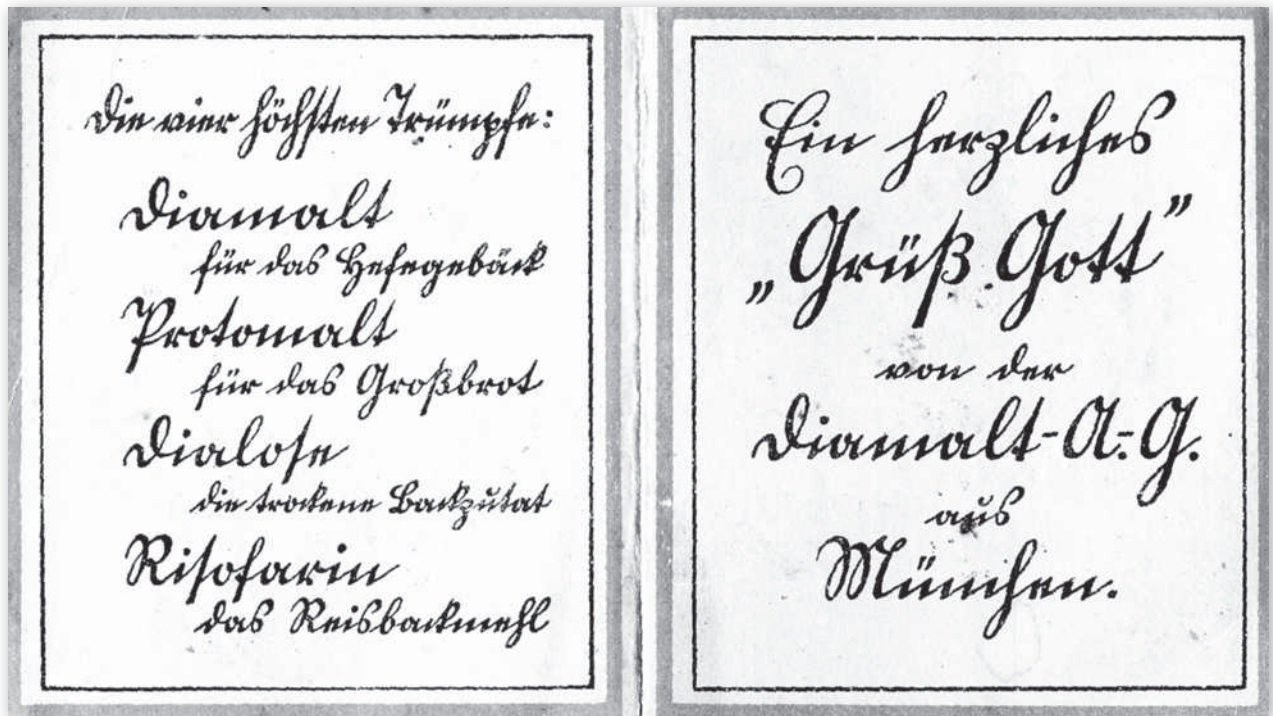 Die vier höchsten Trümpfe:
Diamalt
für das Hefegebäck
Protomalt
für das Großbrot
Dialose
die trockene Backzutat
Risofarin
das Reisbackmehl
Ein herzliches
„Grüß Gott”
von der
Diamalt-A.-G.
aus
München.